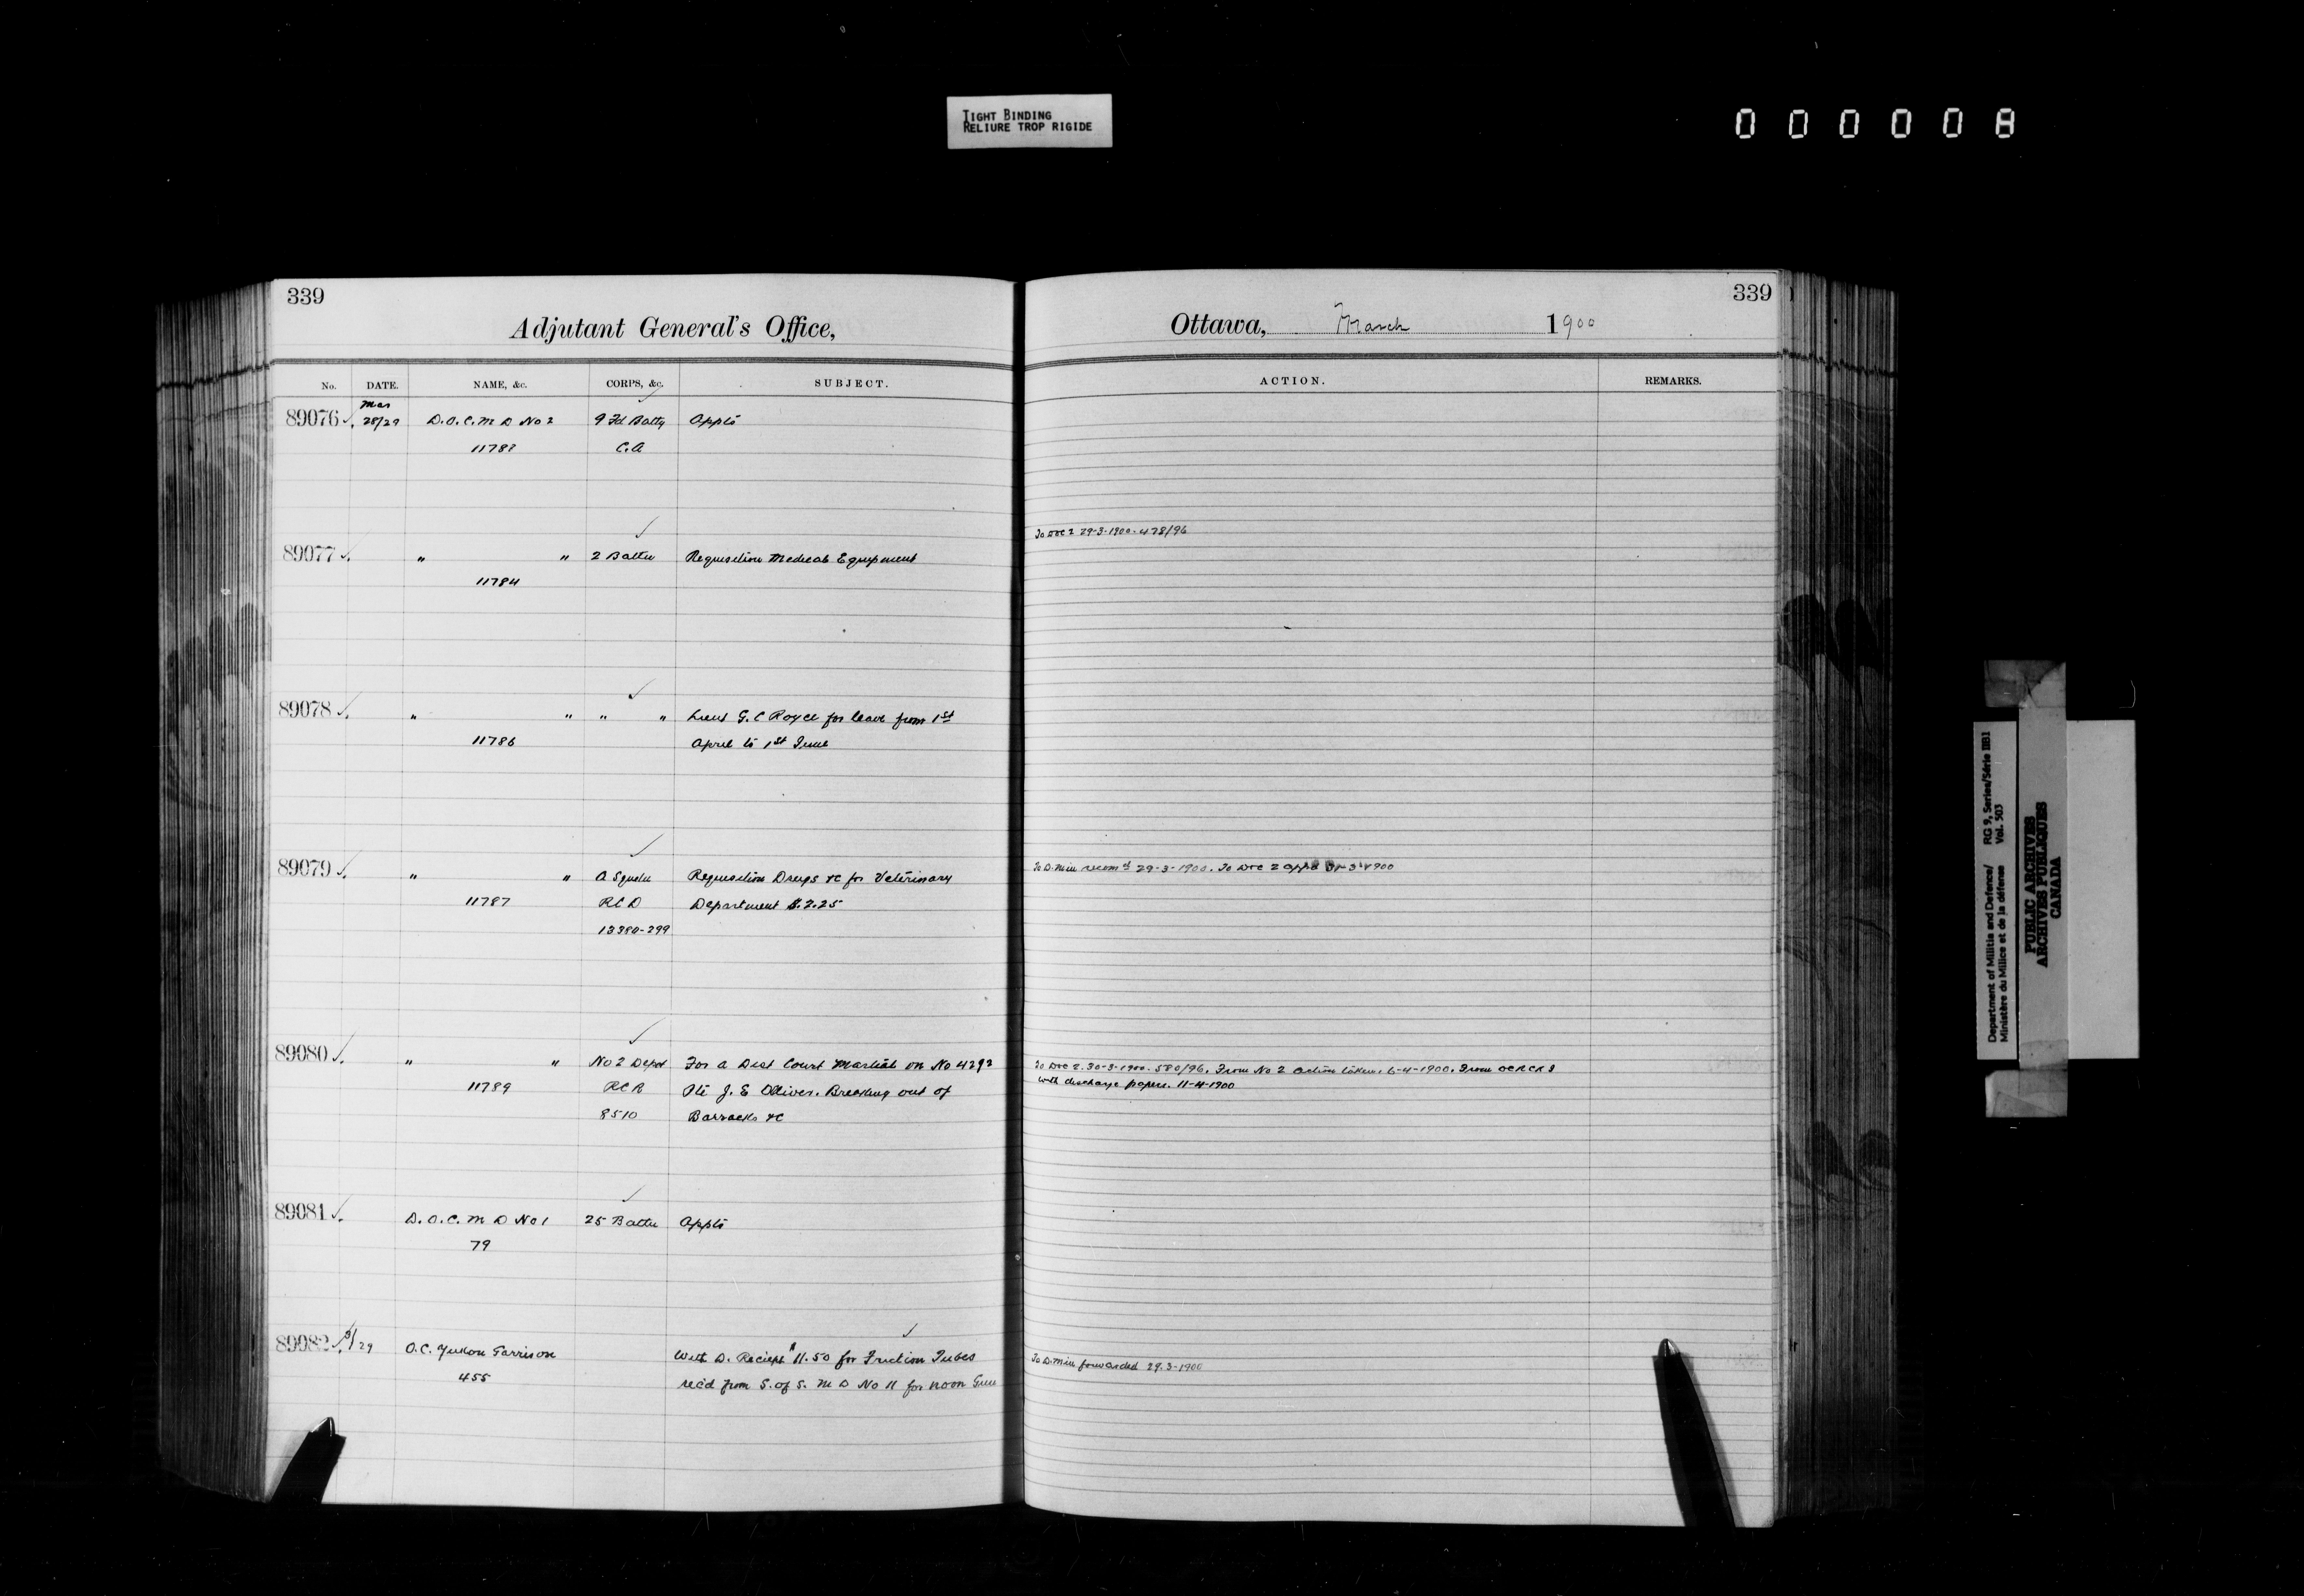 TIGHT BINDING
RELIURE TROP RIGIDE
000008
339
Adjutant General's Office,
No. DATE. NAME, &c. CORPS, &c. SUBJECT.
Mar
89076 28/29 D.O.C. M D No 2 9 Fd Batty Appts
11783 C.A
89077 " " 2 Battn Requisition Medical Equipment
11784
89078 " " " " Lieut G. C Royce for leave from 1st
11786 April to 1st June
89079 " " A Squdn Requisition Drugs &c for Veterinary
11787 RCD Department $.2.25
13380-299
89080 " " No 2 Depot For a Dist Court Martial on No 4292
11789 RCR Pte J. E Olliver. Breaking out of
8510 Barracks &c
89081 D.O.C. M D No 1 25 Battn Appts
79
89082 3/29 O.C. Yukon Garrison With D. Reciept $11.50 for Friction Tubes
455 rec'd from S. of S. M D No 11 for noon Gun
339
Ottawa, March 1900
ACTION. REMARKS.
To DOC 2 29-3-1900. 478/96
To D. Min recomd 29-3-1900. To DOC 2 appd
To DOC 2. 30-3-1900. 580/96. From No 2 action taken. 6-4-1900. From OCRCR
with discharge papers. 11-4-1900
To D. Min forwarded 29.3-1900
Department of Militia and Defence/ RG 9, Series/Série IIB1
Ministère du Milice et de la défense Vol. 503
PUBLIC ARCHIVES
ARCHIVES PUBLIQUES
CANADA